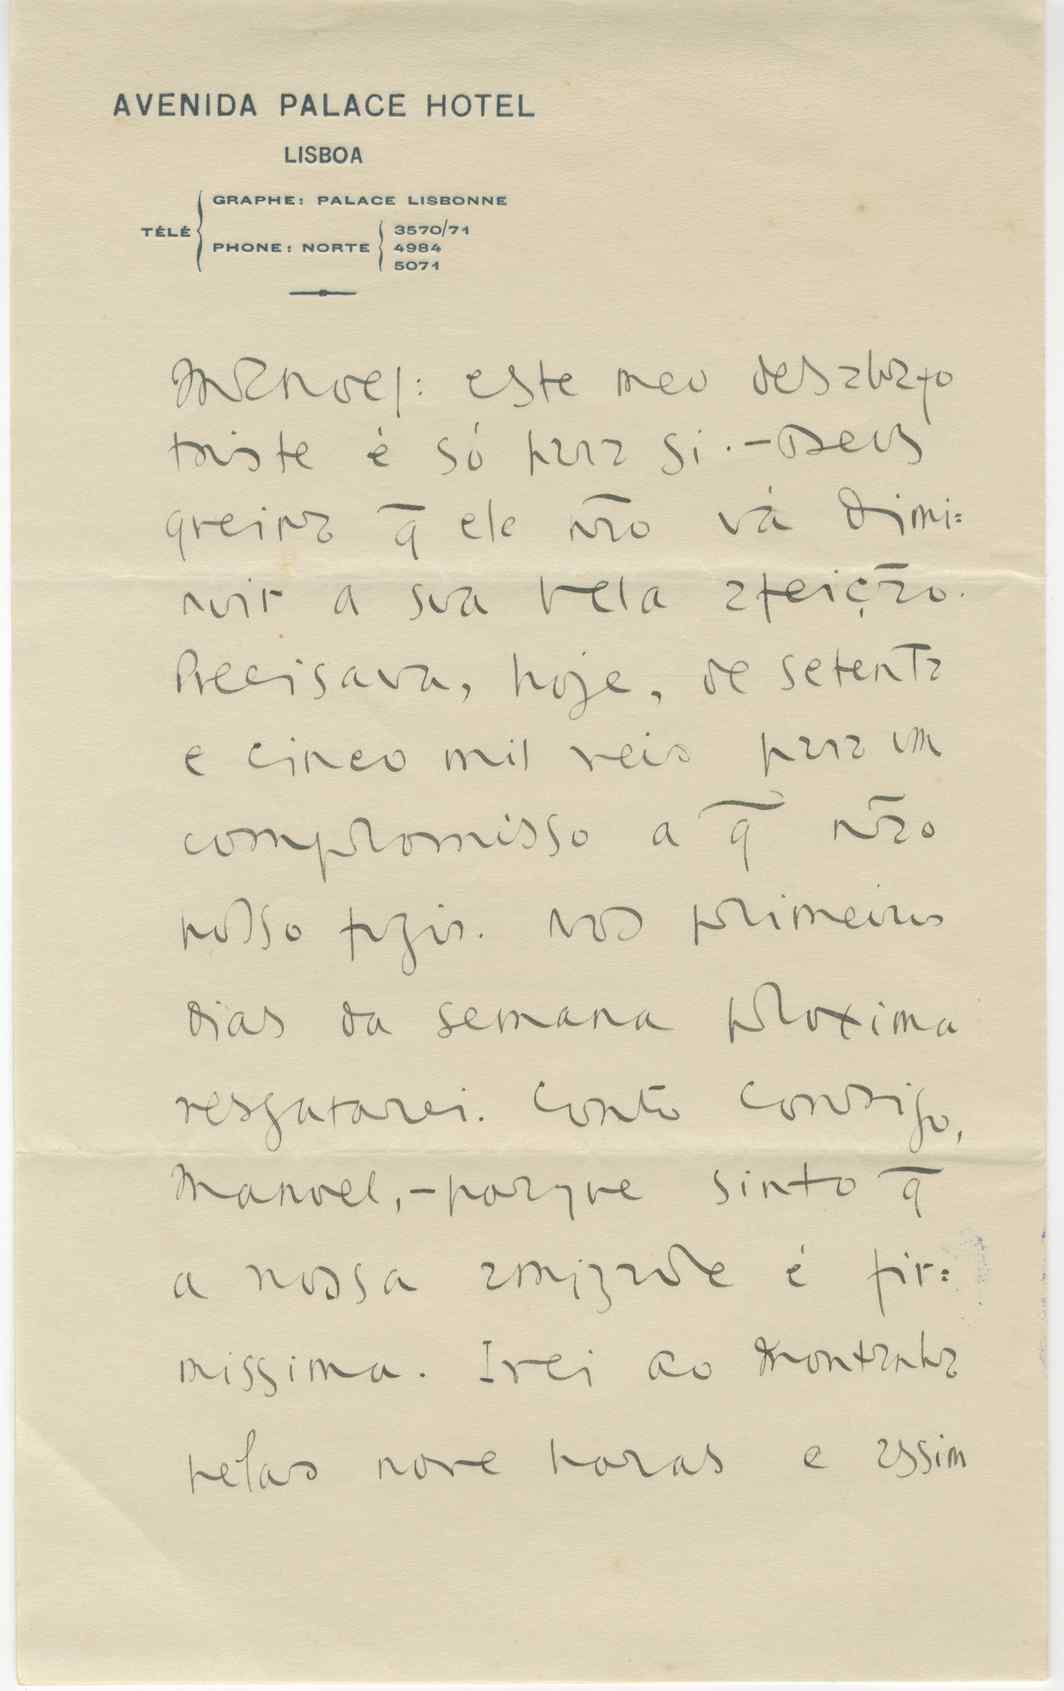 AVENIDA PALACE HOTEL
LISBOA
TÉLÉ
GRAPHE: PALACE LISBONNE
PHONE: NORTE
3570/71
4984
5071
Manoel: este meu desabafo
triste é só para si. - Deus
queira q̄ ele não vá dimi=
nuir a sua bela afeição.
Precisava, hoje, de setenta
e cinco mil reis para um
compromisso a q̄ não
posso fugir. Nos primeiros
dias da semana proxima
resgatarei. Conto consigo,
Manoel, - porque sinto q̄
a nossa amizade é fir=
missima. Irei ao Montanha
pelas nove horas e assim